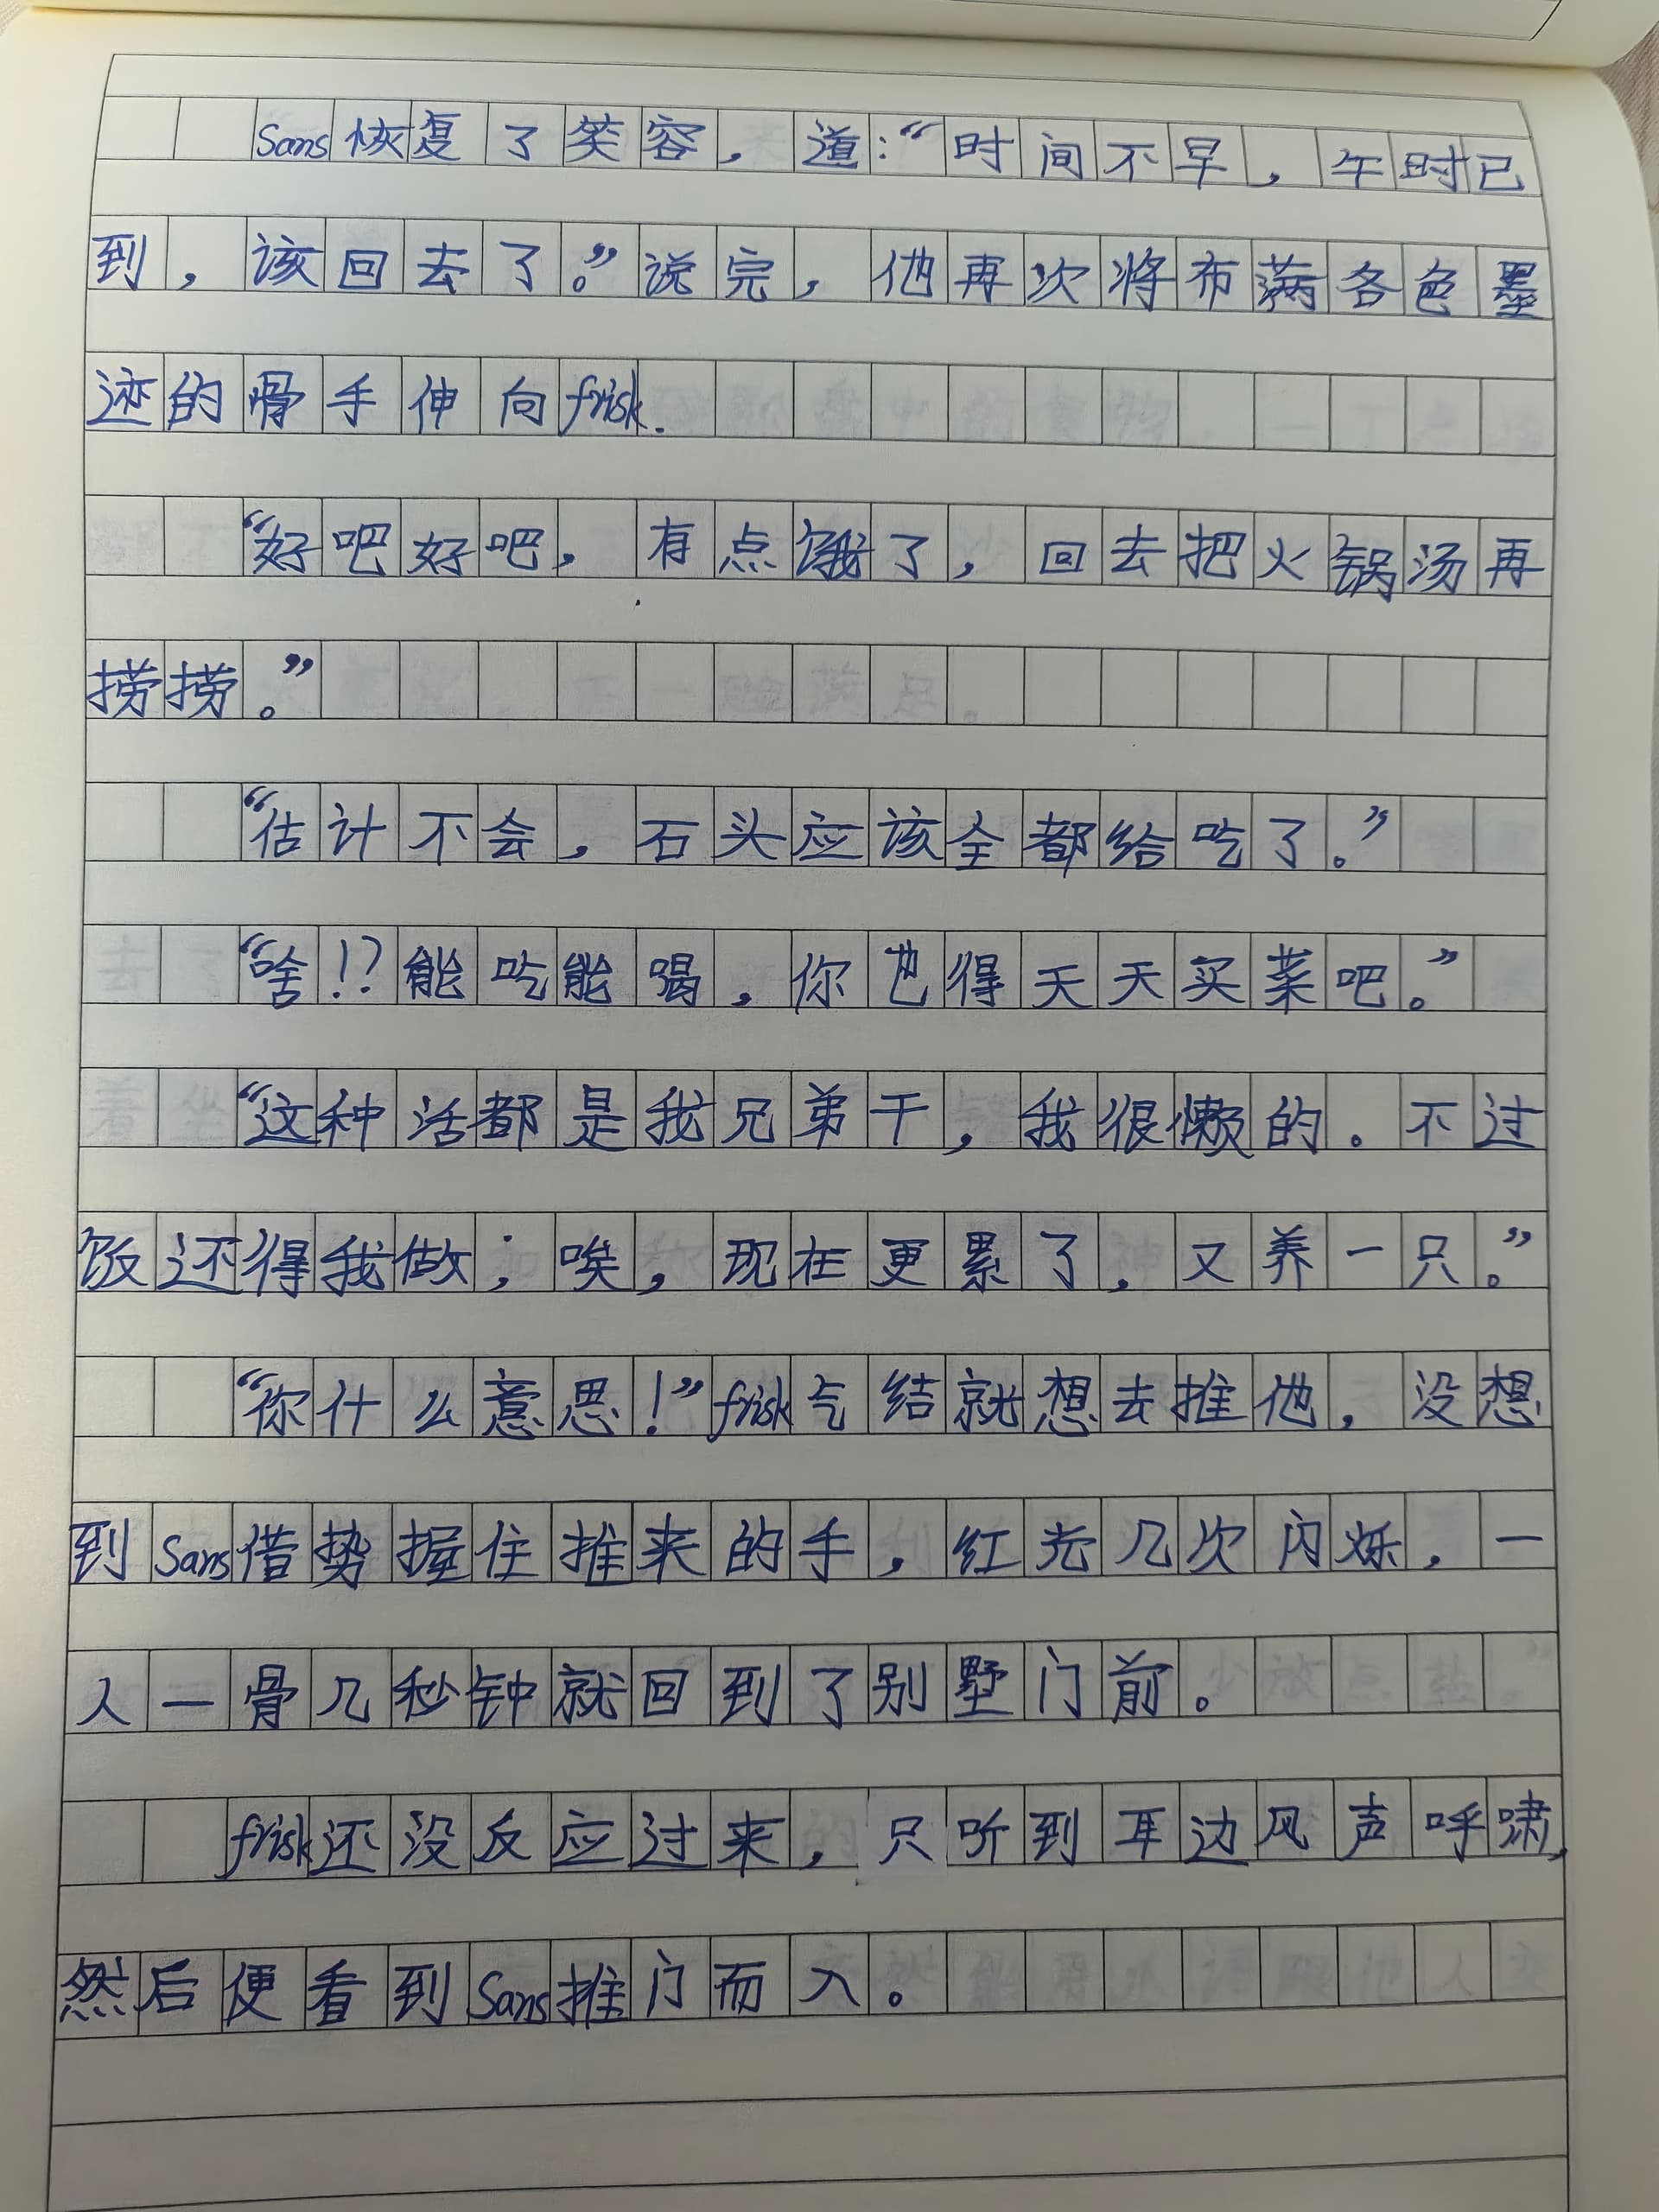 Sans恢复了笑容，道：“时间不早，午时已
到，该回去了。”说完，他再次将布满各色墨
迹的骨手伸向frisk.
“好吧好吧，有点饿了，回去把火锅汤再
捞捞。”
“估计不会，石头应该全都给吃了。”
“啥！？能吃能喝，你也得天天买菜吧。”
“这种活都是我兄弟干，我很懒的。不过
饭还得我做；唉，现在更累了，又养一只。”
“你什么意思！”frisk气结就想去推他，没想
到Sans借势握住推来的手，红光几次闪烁，一
人一骨几秒钟就回到了别墅门前。
frisk还没反应过来，只听到耳边风声呼啸，
然后便看到Sans推门而入。